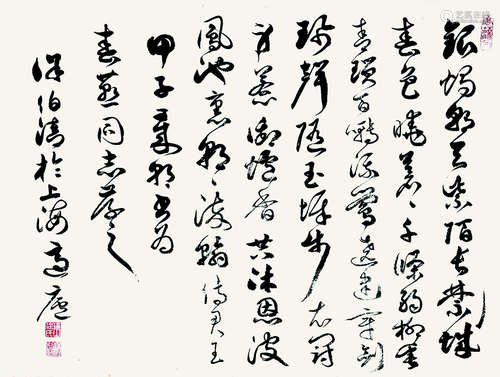 銀燭朝天紫陌長禁城
春色曉蒼〻千條弱柳垂
青瑣百囀流鶯遶建章劍
珮聲隨玉墀步衣冠
身惹御爐香共沐恩波
鳳池裏朝〻染翰侍君王
甲子夏朝书为
春燕同志存之
伯清於上海廬